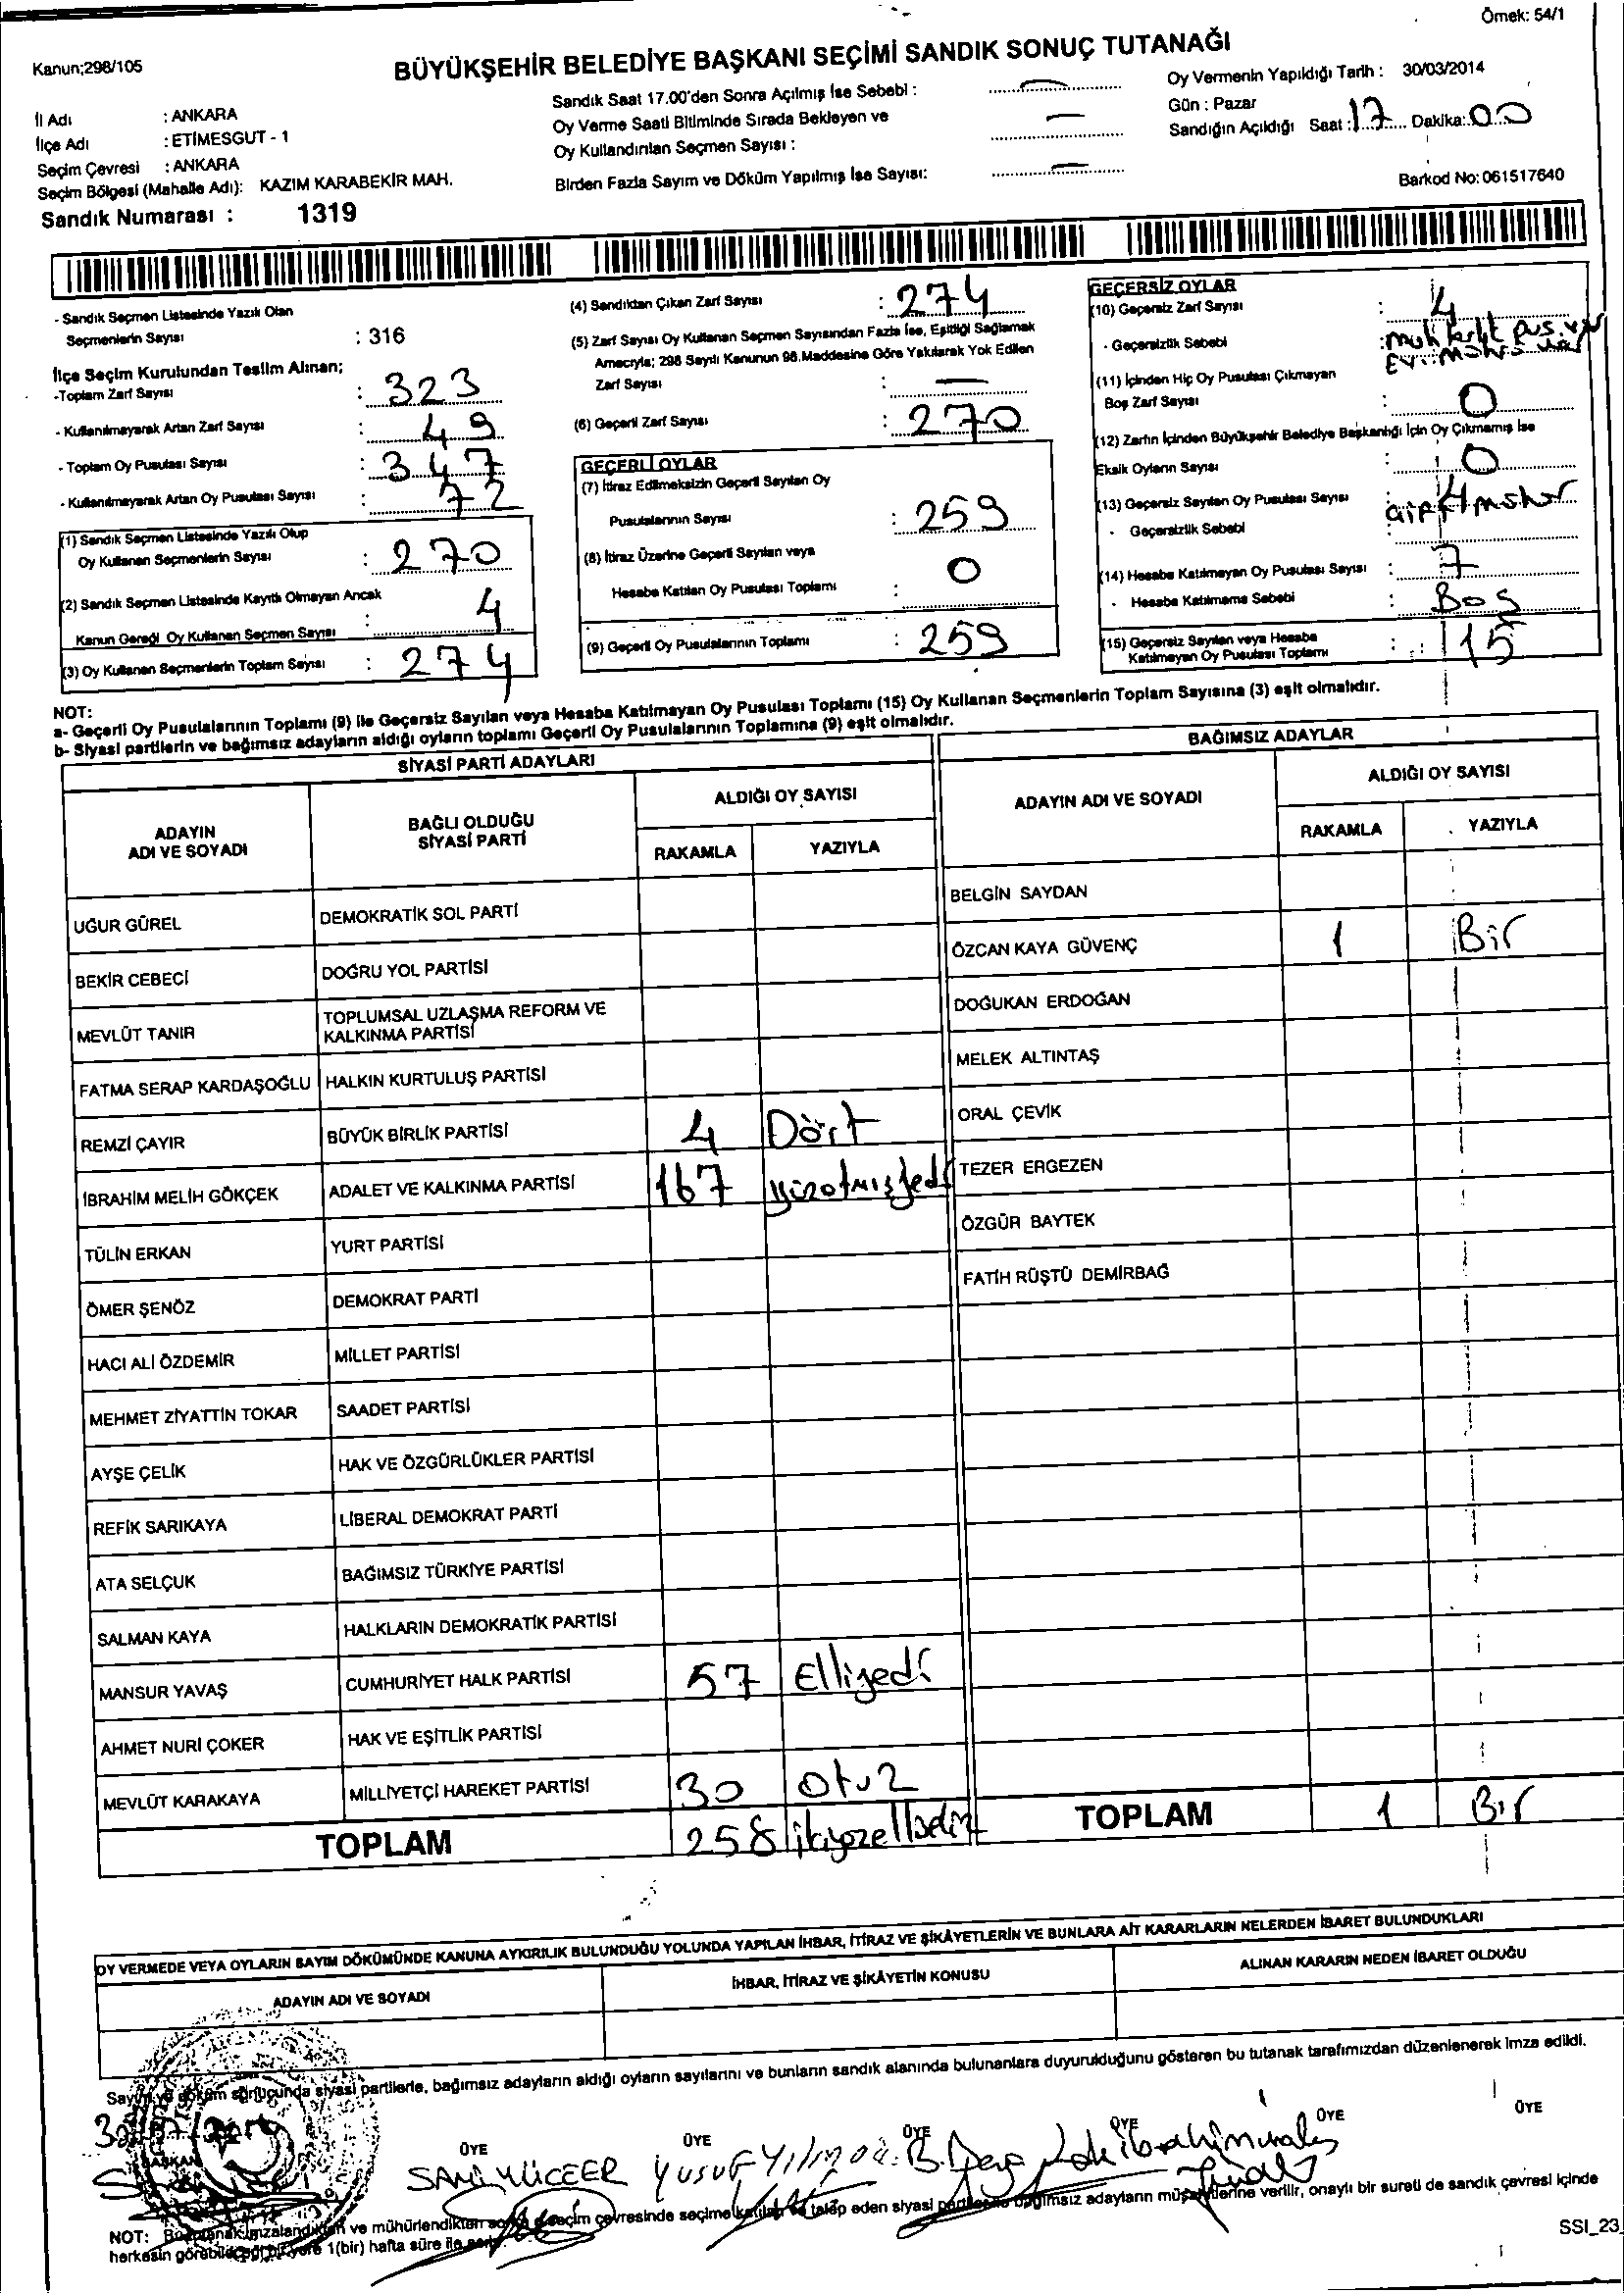 Örnek: 54/1
Kanun;298/105
BÜYÜKŞEHİR BELEDİYE BAŞKANI SEÇİMİ SANDIK SONUÇ TUTANAĞI
İl Adı : ANKARA
İlçe Adı : ETİMESGUT - 1
Seçim Çevresi : ANKARA
Seçim Bölgesi (Mahalle Adı): KAZIM KARABEKİR MAH.
Sandık Numarası : 1319
Sandık Saat 17.00'den Sonra Açılmış İse Sebebi : —
Oy Verme Saati Bitiminde Sırada Bekleyen ve
Oy Kullandırılan Seçmen Sayısı : —
Birden Fazla Sayım ve Döküm Yapılmış İse Sayısı: —
Oy Vermenin Yapıldığı Tarih : 30/03/2014
Gün : Pazar
Sandığın Açıldığı Saat : 17 Dakika: 00
Barkod No: 061517640
- Sandık Seçmen Listesinde Yazılı Olan
Seçmenlerin Sayısı : 316
İlçe Seçim Kurulundan Teslim Alınan;
-Toplam Zarf Sayısı : 323
- Kullanılmayarak Artan Zarf Sayısı : 49
- Toplam Oy Pusulası Sayısı : 347
- Kullanılmayarak Artan Oy Pusulası Sayısı : 72
(1) Sandık Seçmen Listesinde Yazılı Olup
Oy Kullanan Seçmenlerin Sayısı : 270
(2) Sandık Seçmen Listesinde Kayıtlı Olmayan Ancak
Kanun Gereği Oy Kullanan Seçmen Sayısı : 4
(3) Oy Kullanan Seçmenlerin Toplam Sayısı : 274
(4) Sandıktan Çıkan Zarf Sayısı : 274
(5) Zarf Sayısı Oy Kullanan Seçmen Sayısından Fazla İse, Eşitliği Sağlamak
Amacıyla; 298 Sayılı Kanunun 98.Maddesine Göre Yakılarak Yok Edilen
Zarf Sayısı : —
(6) Geçerli Zarf Sayısı : 270
GEÇERLİ OYLAR
(7) İtiraz Edilmeksizin Geçerli Sayılan Oy
Pusulalarının Sayısı : 259
(8) İtiraz Üzerine Geçerli Sayılan veya
Hesaba Katılan Oy Pusulası Toplamı : 0
(9) Geçerli Oy Pusulalarının Toplamı : 259
GEÇERSİZ OYLAR
(10) Geçersiz Zarf Sayısı : 4
- Geçersizlik Sebebi : muhtarlık pus. var
(11) İçinden Hiç Oy Pusulası Çıkmayan
Boş Zarf Sayısı : 0
(12) Zarfın İçinden Büyükşehir Belediye Başkanlığı İçin Oy Çıkmamış İse
Eksik Oyların Sayısı : 0
(13) Geçersiz Sayılan Oy Pusulası Sayısı : 4
- Geçersizlik Sebebi
(14) Hesaba Katılmayan Oy Pusulası Sayısı : 7
- Hesaba Katılmama Sebebi : Boş
(15) Geçersiz Sayılan veya Hesaba
Katılmayan Oy Pusulası Toplamı : 15
NOT:
a- Geçerli Oy Pusulalarının Toplamı (9) ile Geçersiz Sayılan veya Hesaba Katılmayan Oy Pusulası Toplamı (15) Oy Kullanan Seçmenlerin Toplam Sayısına (3) eşit olmalıdır.
b- Siyasi partilerin ve bağımsız adayların aldığı oyların toplamı Geçerli Oy Pusulalarının Toplamına (9) eşit olmalıdır.
SİYASİ PARTİ ADAYLARI
ADAYIN ADI VE SOYADI BAĞLI OLDUĞU SİYASİ PARTİ ALDIĞI OY SAYISI
RAKAMLA YAZIYLA
UĞUR GÜREL DEMOKRATİK SOL PARTİ
BEKİR CEBECİ DOĞRU YOL PARTİSİ
MEVLÜT TANIR TOPLUMSAL UZLAŞMA REFORM VE KALKINMA PARTİSİ
FATMA SERAP KARDAŞOĞLU HALKIN KURTULUŞ PARTİSİ
REMZİ ÇAYIR BÜYÜK BİRLİK PARTİSİ 4 Dört
İBRAHİM MELİH GÖKÇEK ADALET VE KALKINMA PARTİSİ 167 yüzatmışyedi
TÜLİN ERKAN YURT PARTİSİ
ÖMER ŞENÖZ DEMOKRAT PARTİ
HACI ALİ ÖZDEMİR MİLLET PARTİSİ
MEHMET ZİYATTİN TOKAR SAADET PARTİSİ
AYŞE ÇELİK HAK VE ÖZGÜRLÜKLER PARTİSİ
REFİK SARIKAYA LİBERAL DEMOKRAT PARTİ
ATA SELÇUK BAĞIMSIZ TÜRKİYE PARTİSİ
SALMAN KAYA HALKLARIN DEMOKRATİK PARTİSİ
MANSUR YAVAŞ CUMHURİYET HALK PARTİSİ 57 Elliyedi
AHMET NURİ ÇOKER HAK VE EŞİTLİK PARTİSİ
MEVLÜT KARAKAYA MİLLİYETÇİ HAREKET PARTİSİ 30 otuz
TOPLAM 258
BAĞIMSIZ ADAYLAR
ADAYIN ADI VE SOYADI ALDIĞI OY SAYISI
RAKAMLA YAZIYLA
BELGİN SAYDAN
ÖZCAN KAYA GÜVENÇ 1 Bir
DOĞUKAN ERDOĞAN
MELEK ALTINTAŞ
ORAL ÇEVİK
TEZER ERGEZEN
ÖZGÜR BAYTEK
FATİH RÜŞTÜ DEMİRBAĞ
TOPLAM 1 Bir
OY VERMEDE VEYA OYLARIN SAYIM DÖKÜMÜNDE KANUNA AYKIRILIK BULUNDUĞU YOLUNDA YAPILAN İHBAR, İTİRAZ VE ŞİKÂYETLERİN VE BUNLARA AİT KARARLARIN NELERDEN İBARET BULUNDUKLARI
ADAYIN ADI VE SOYADI İHBAR, İTİRAZ VE ŞİKÂYETİN KONUSU ALINAN KARARIN NEDEN İBARET OLDUĞU
Sayım ve döküm sonucunda siyasi partilerle, bağımsız adayların aldığı oyların sayılarını ve bunların sandık alanında bulunanlara duyurulduğunu gösteren bu tutanak tarafımızdan düzenlenerek imza edildi.
BAŞKAN ÜYE ÜYE ÜYE ÜYE ÜYE ÜYE
SAMİ YÜCEER Yusuf Yılmaz
NOT: Bu tutanak imzalandıktan ve mühürlendikten sonra seçim çevresinde seçime katılan ve talep eden siyasi partilerle bağımsız adayların müşahitlerine verilir, onaylı bir sureti de sandık çevresi içinde
herkesin görebileceği bir yere 1(bir) hafta süre ile asılır.
SSI_23